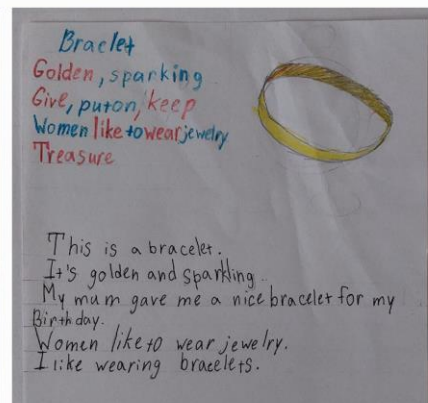 Braclet
Golden, sparking
Give, put on, keep
Women like to wear jewelry
Treasure
This is a bracelet.
It's golden and sparkling.
My mum gave me a nice bracelet for my
Birthday.
Women like to wear jewelry.
I like wearing bracelets.